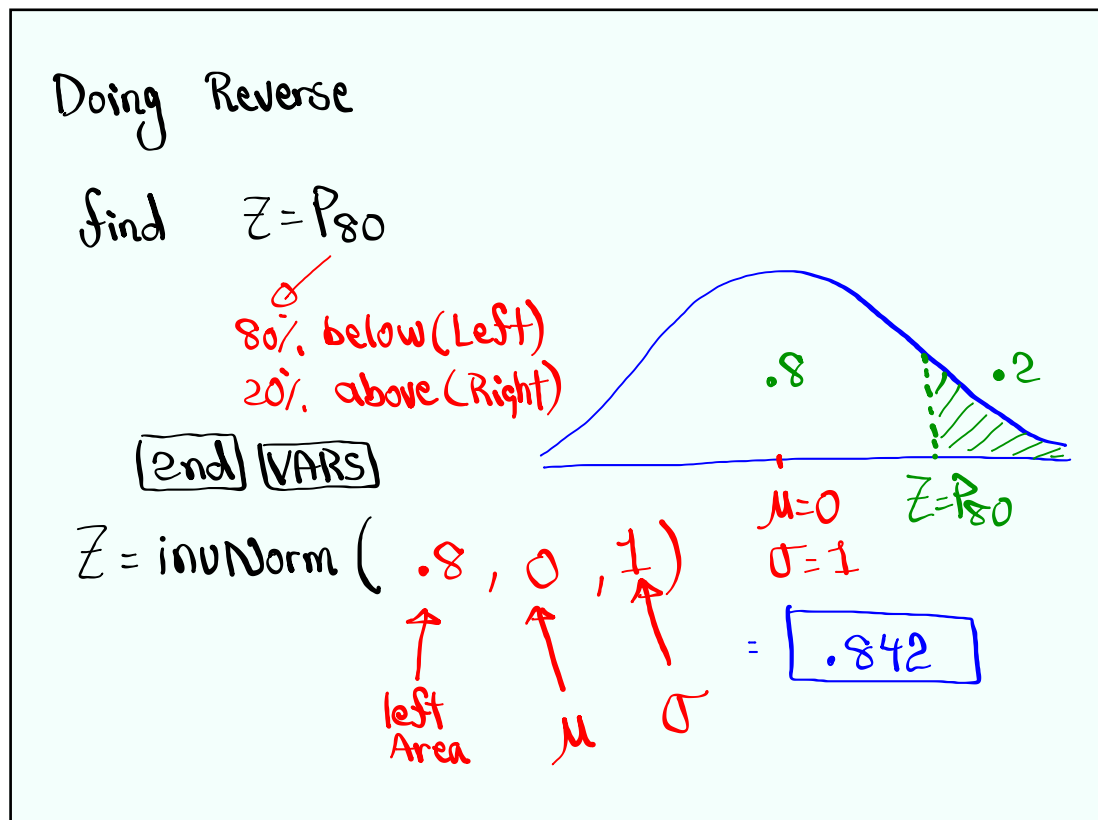 Doing Reverse
find Z=P80
80% below (Left)
20% above (Right)
.8
.2
2nd VARS
μ=0
Z=P80
σ=1
Z = invNorm ( .8 , 0 , 1 )
= .842
left Area
μ
σ